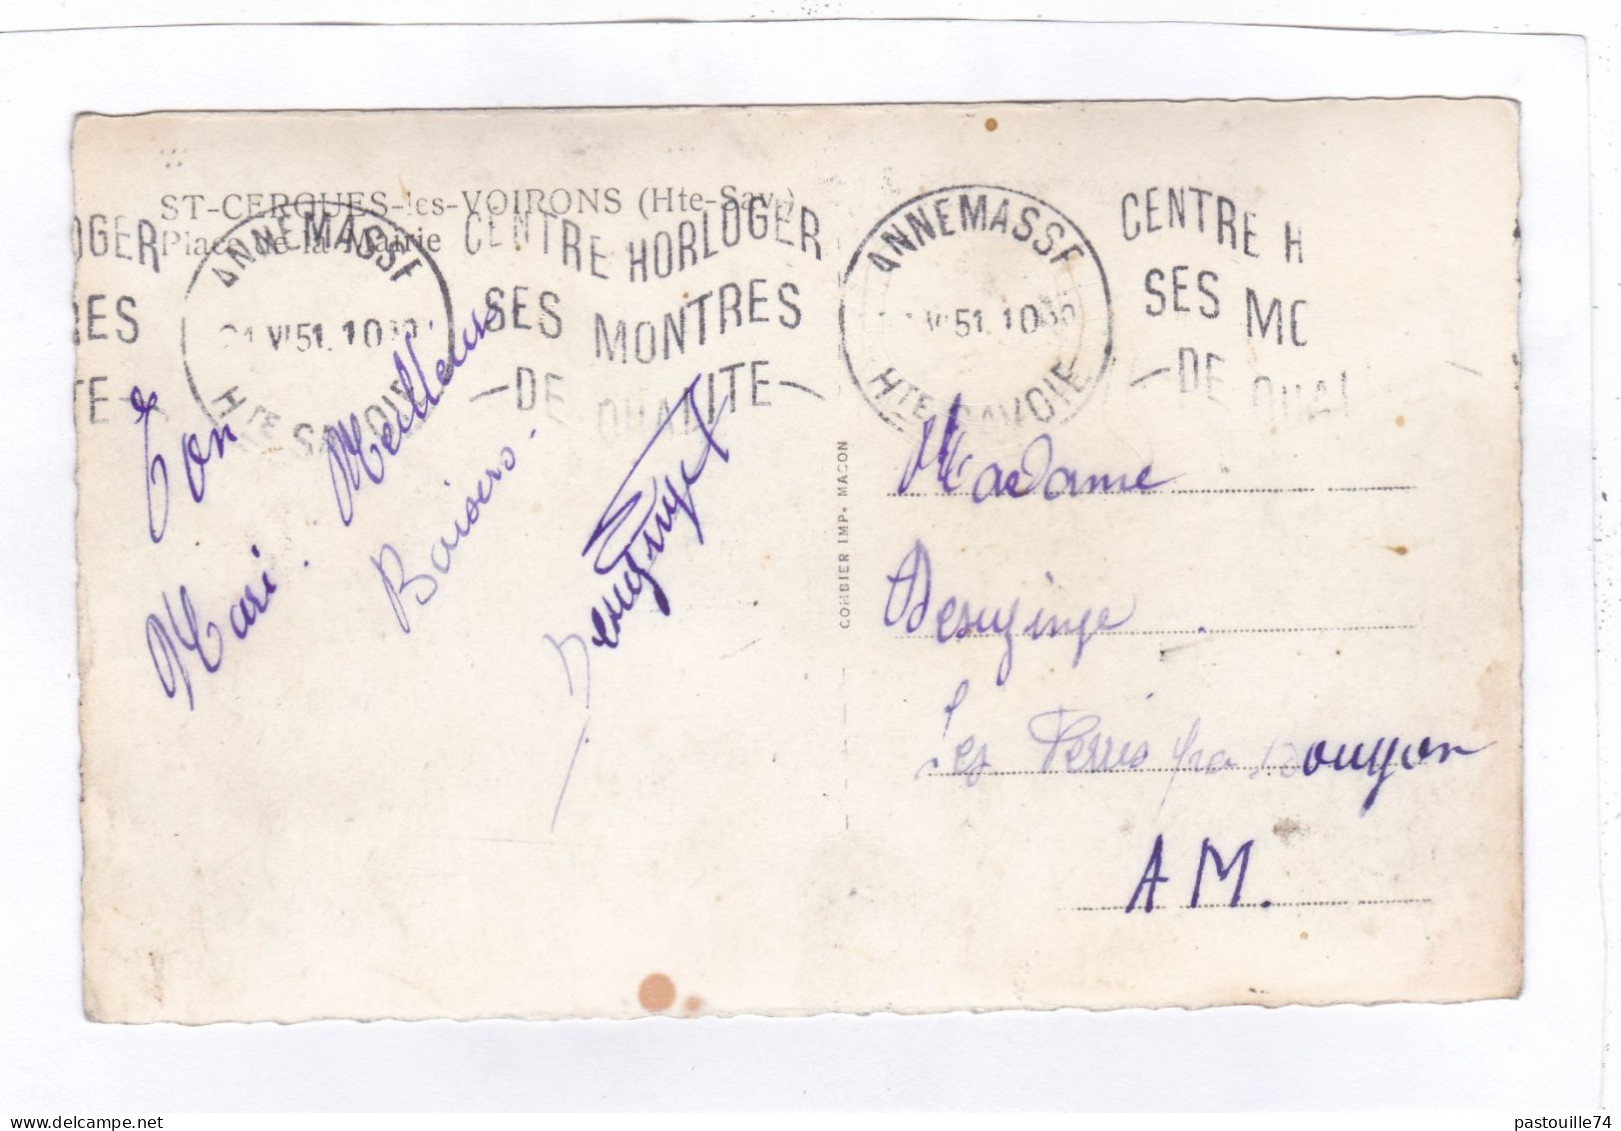 ST-CERGUES-les-VOIRONS (Hte-Sav.)
Place de la Mairie
OGER
RES
TE
ANNEMASSE
21 VI 51. 10
HTE SAVOIE
CENTRE HORLOGER
SES MONTRES
DE QUALITE
ANNEMASSE
VI 51. 10
HTE SAVOIE
CENTRE H
SES MO
DE QUAL
Ton
Mari. Meilleurs
Baisers.
COMBIER IMP. MACON
Madame
Desuzinge
Les
A M.
pastouille74